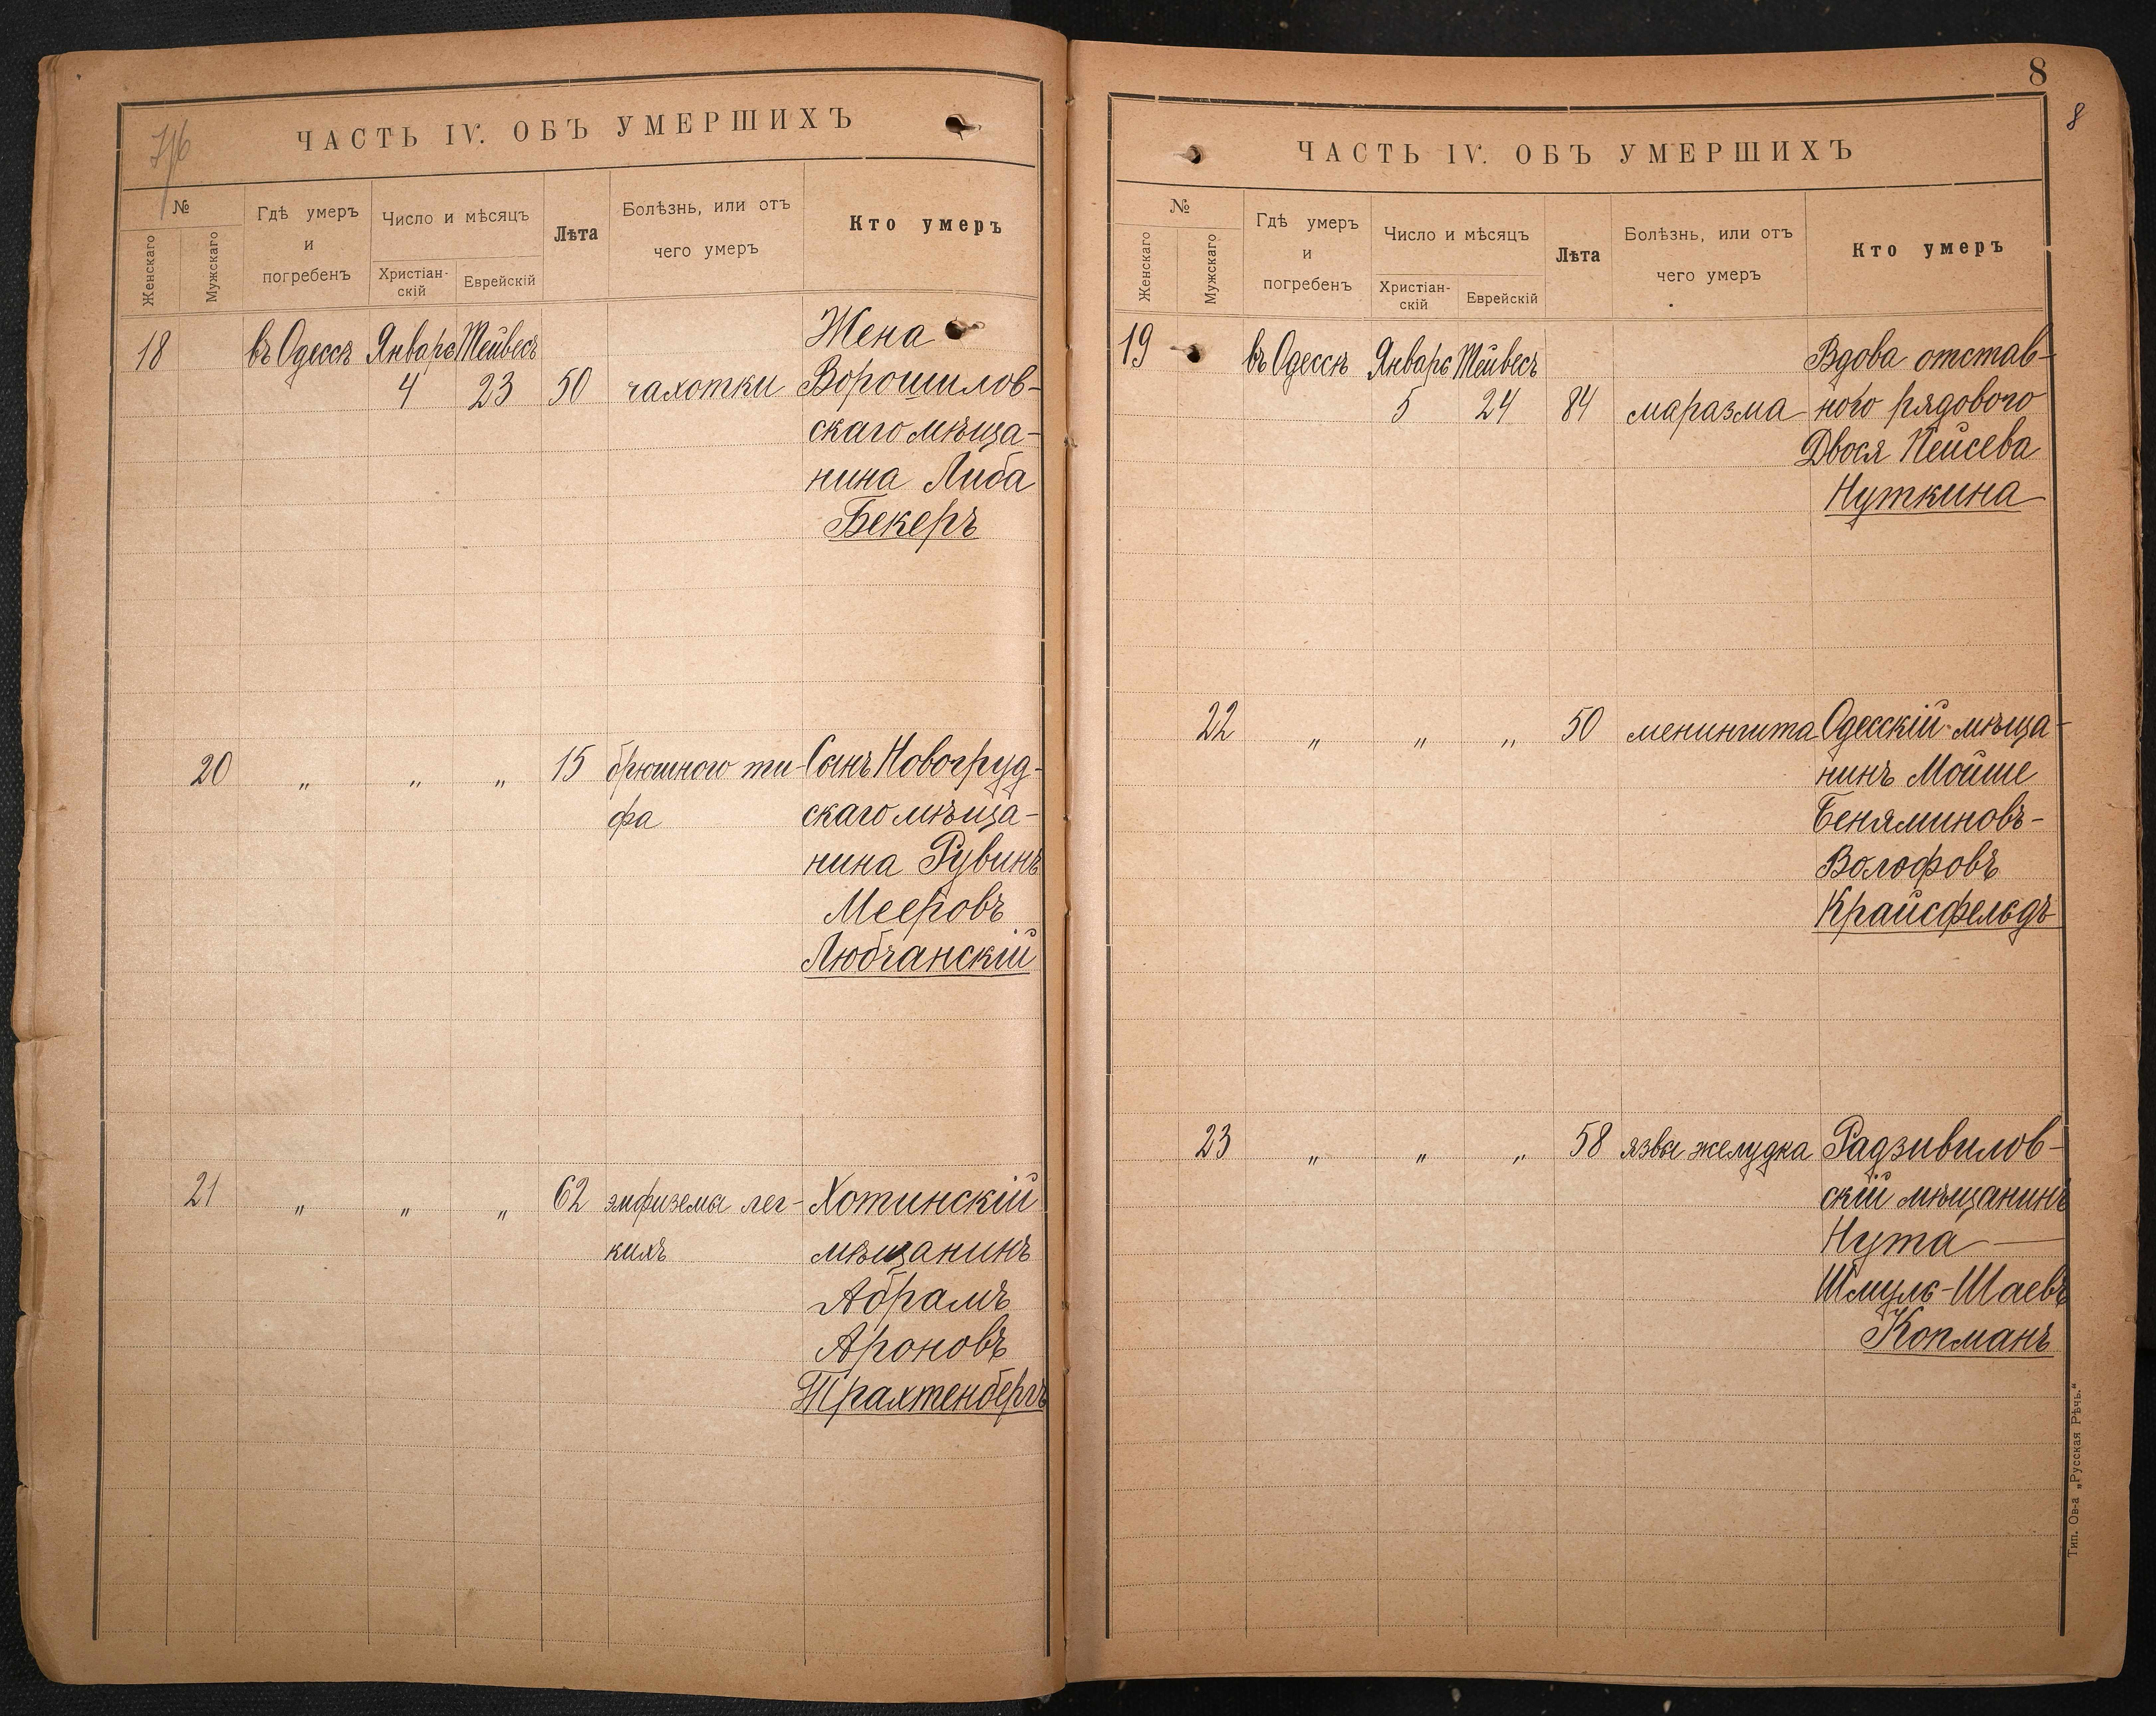 7/6
ЧАСТЬ IV. ОБЪ УМЕРШИХЪ
№
Женскаго
Мужскаго
Гдѣ умеръ
и
погребенъ
Число и мѣсяцъ
Христіан-
скій
Еврейскій
Лѣта
Болѣзнь, или отъ
чего умеръ
Кто умеръ
18 въ Одессѣ Январь Тейвесъ Жена
4 23 50 чахотки Ворошилов-
скаго мѣща-
нина Либа
Бекеръ
20 „ „ „ 15 брюшного ти- Сынъ Новогруд-
фа скаго мѣща-
нина Рувинъ
Мееровъ
Любчанскій
21 „ „ „ 62 эмфизема лег- Хотинскій
кихъ мѣщанинъ
Абрамъ
Ароновъ
Трахтенбергъ
8
8
ЧАСТЬ IV. ОБЪ УМЕРШИХЪ
№
Женскаго
Мужскаго
Гдѣ умеръ
и
погребенъ
Число и мѣсяцъ
Христіан-
скій
Еврейскій
Лѣта
Болѣзнь, или отъ
чего умеръ
Кто умеръ
19 въ Одессѣ Январь Тейвесъ Вдова отстав-
5 24 84 маразма ного рядового
Двося Пейсева
Нуткина
22 „ „ „ 50 менингита Одесскій мѣща-
нинъ Мойше
Беняминовъ-
Волофовъ
Крайсфельдъ
23 „ „ „ 58 язвы желудка Радзивилов-
скій мѣщанинъ
Нута
Шмуль-Шаевъ
Копманъ
Тип. Ов-а „Русская Рѣчь.“